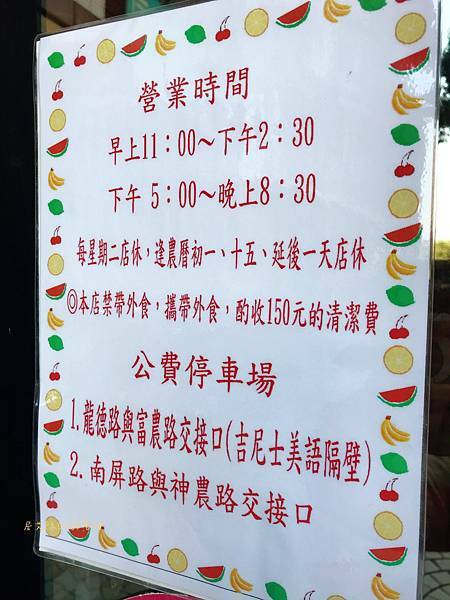 營業時間
早上11：00～下午2：30
下午 5：00～晚上8：30
每星期二店休，逢農曆初一、十五、延後一天店休
◎本店禁帶外食，攜帶外食，酌收150元的清潔費
公費停車場
1. 龍德路與富農路交接口(吉尼士美語隔壁)
2. 南屏路與神農路交接口